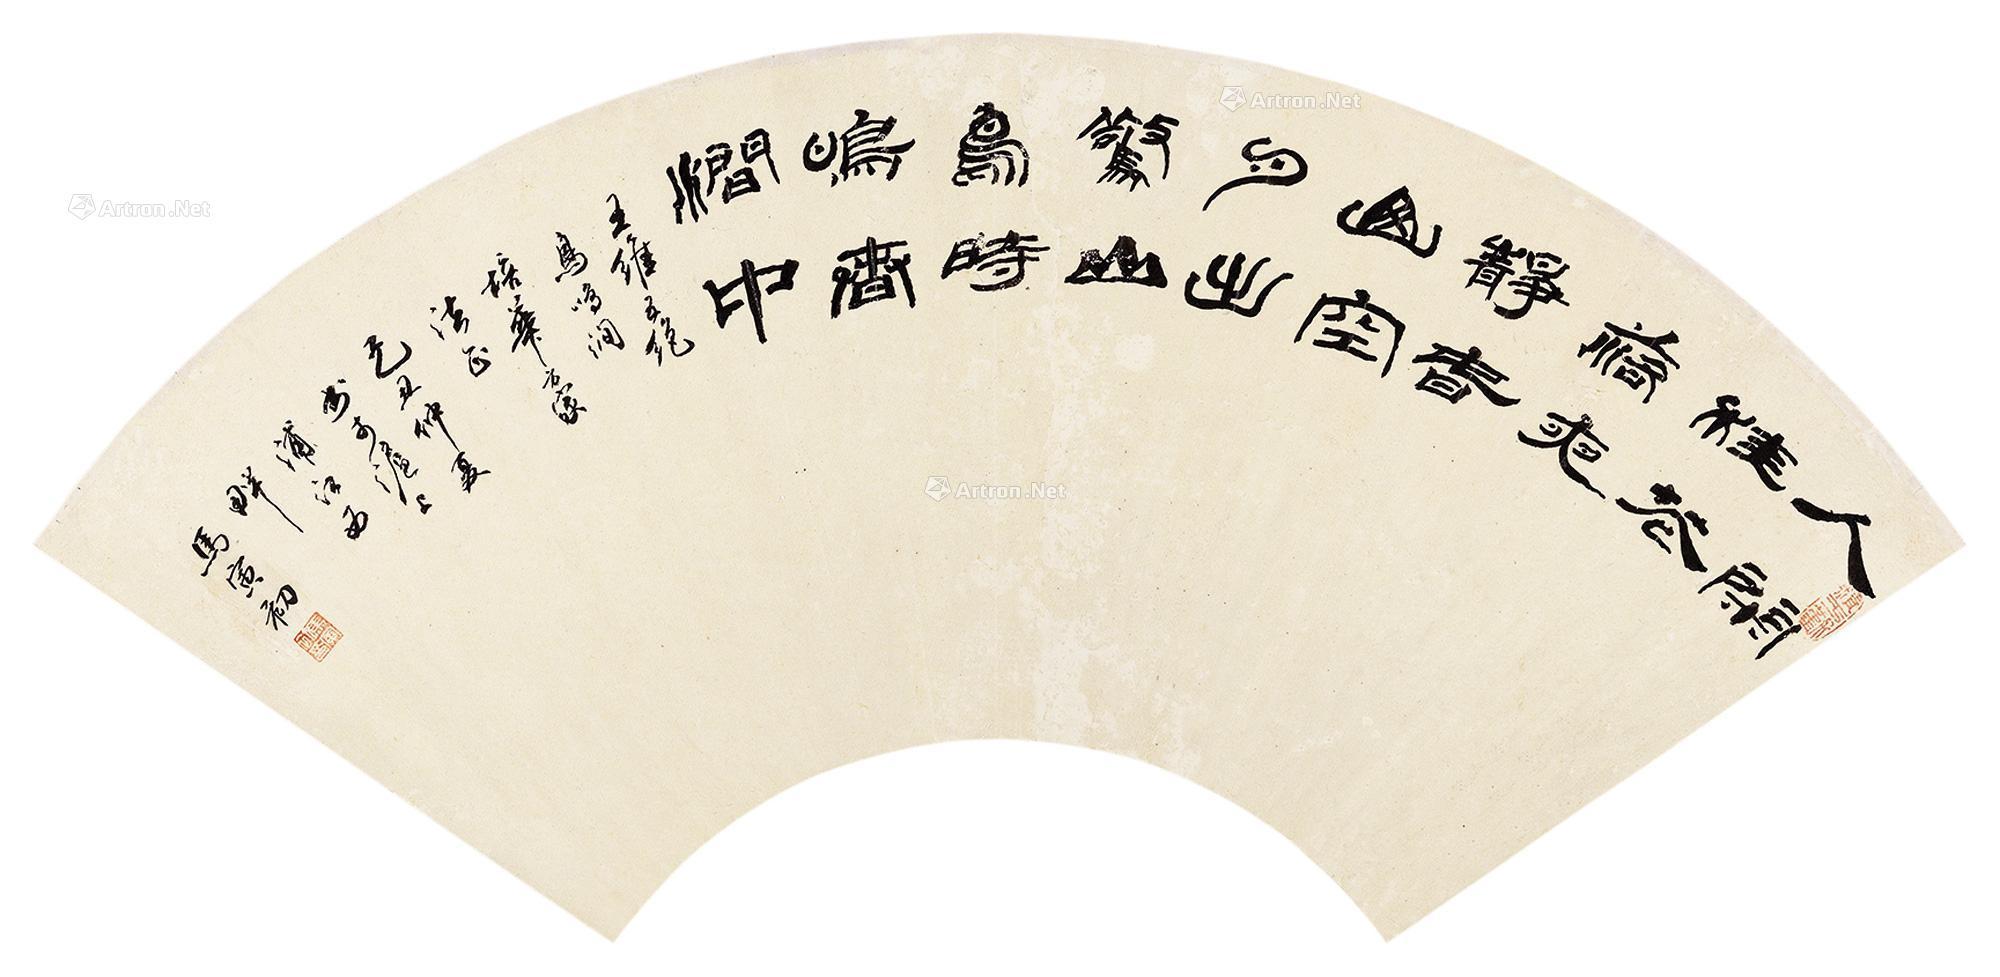 人閒
桂花
落夜
靜春
山空
月出
驚山
鳥時
鳴春
澗中
王維五絕
鳥鳴澗
培華方家
法正
己丑仲夏
书于滬上
浦江西
畔
馬寅初
Artron.Net
Artron.Net
Artron.Net